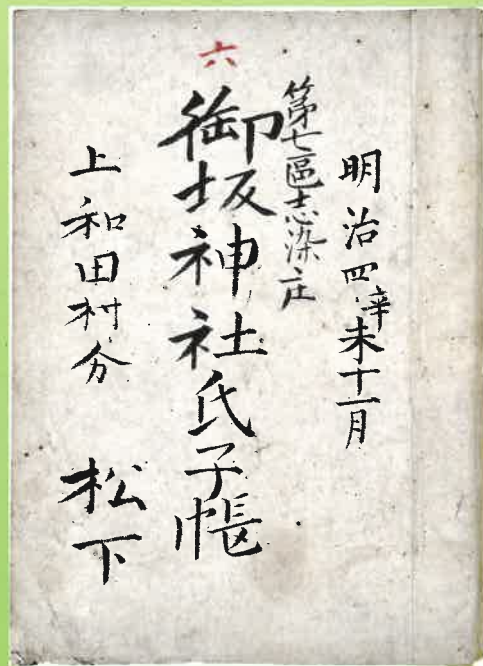 明治四辛未十一月
六
第七區志染庄
御坂神社氏子帳
上和田村分 松下